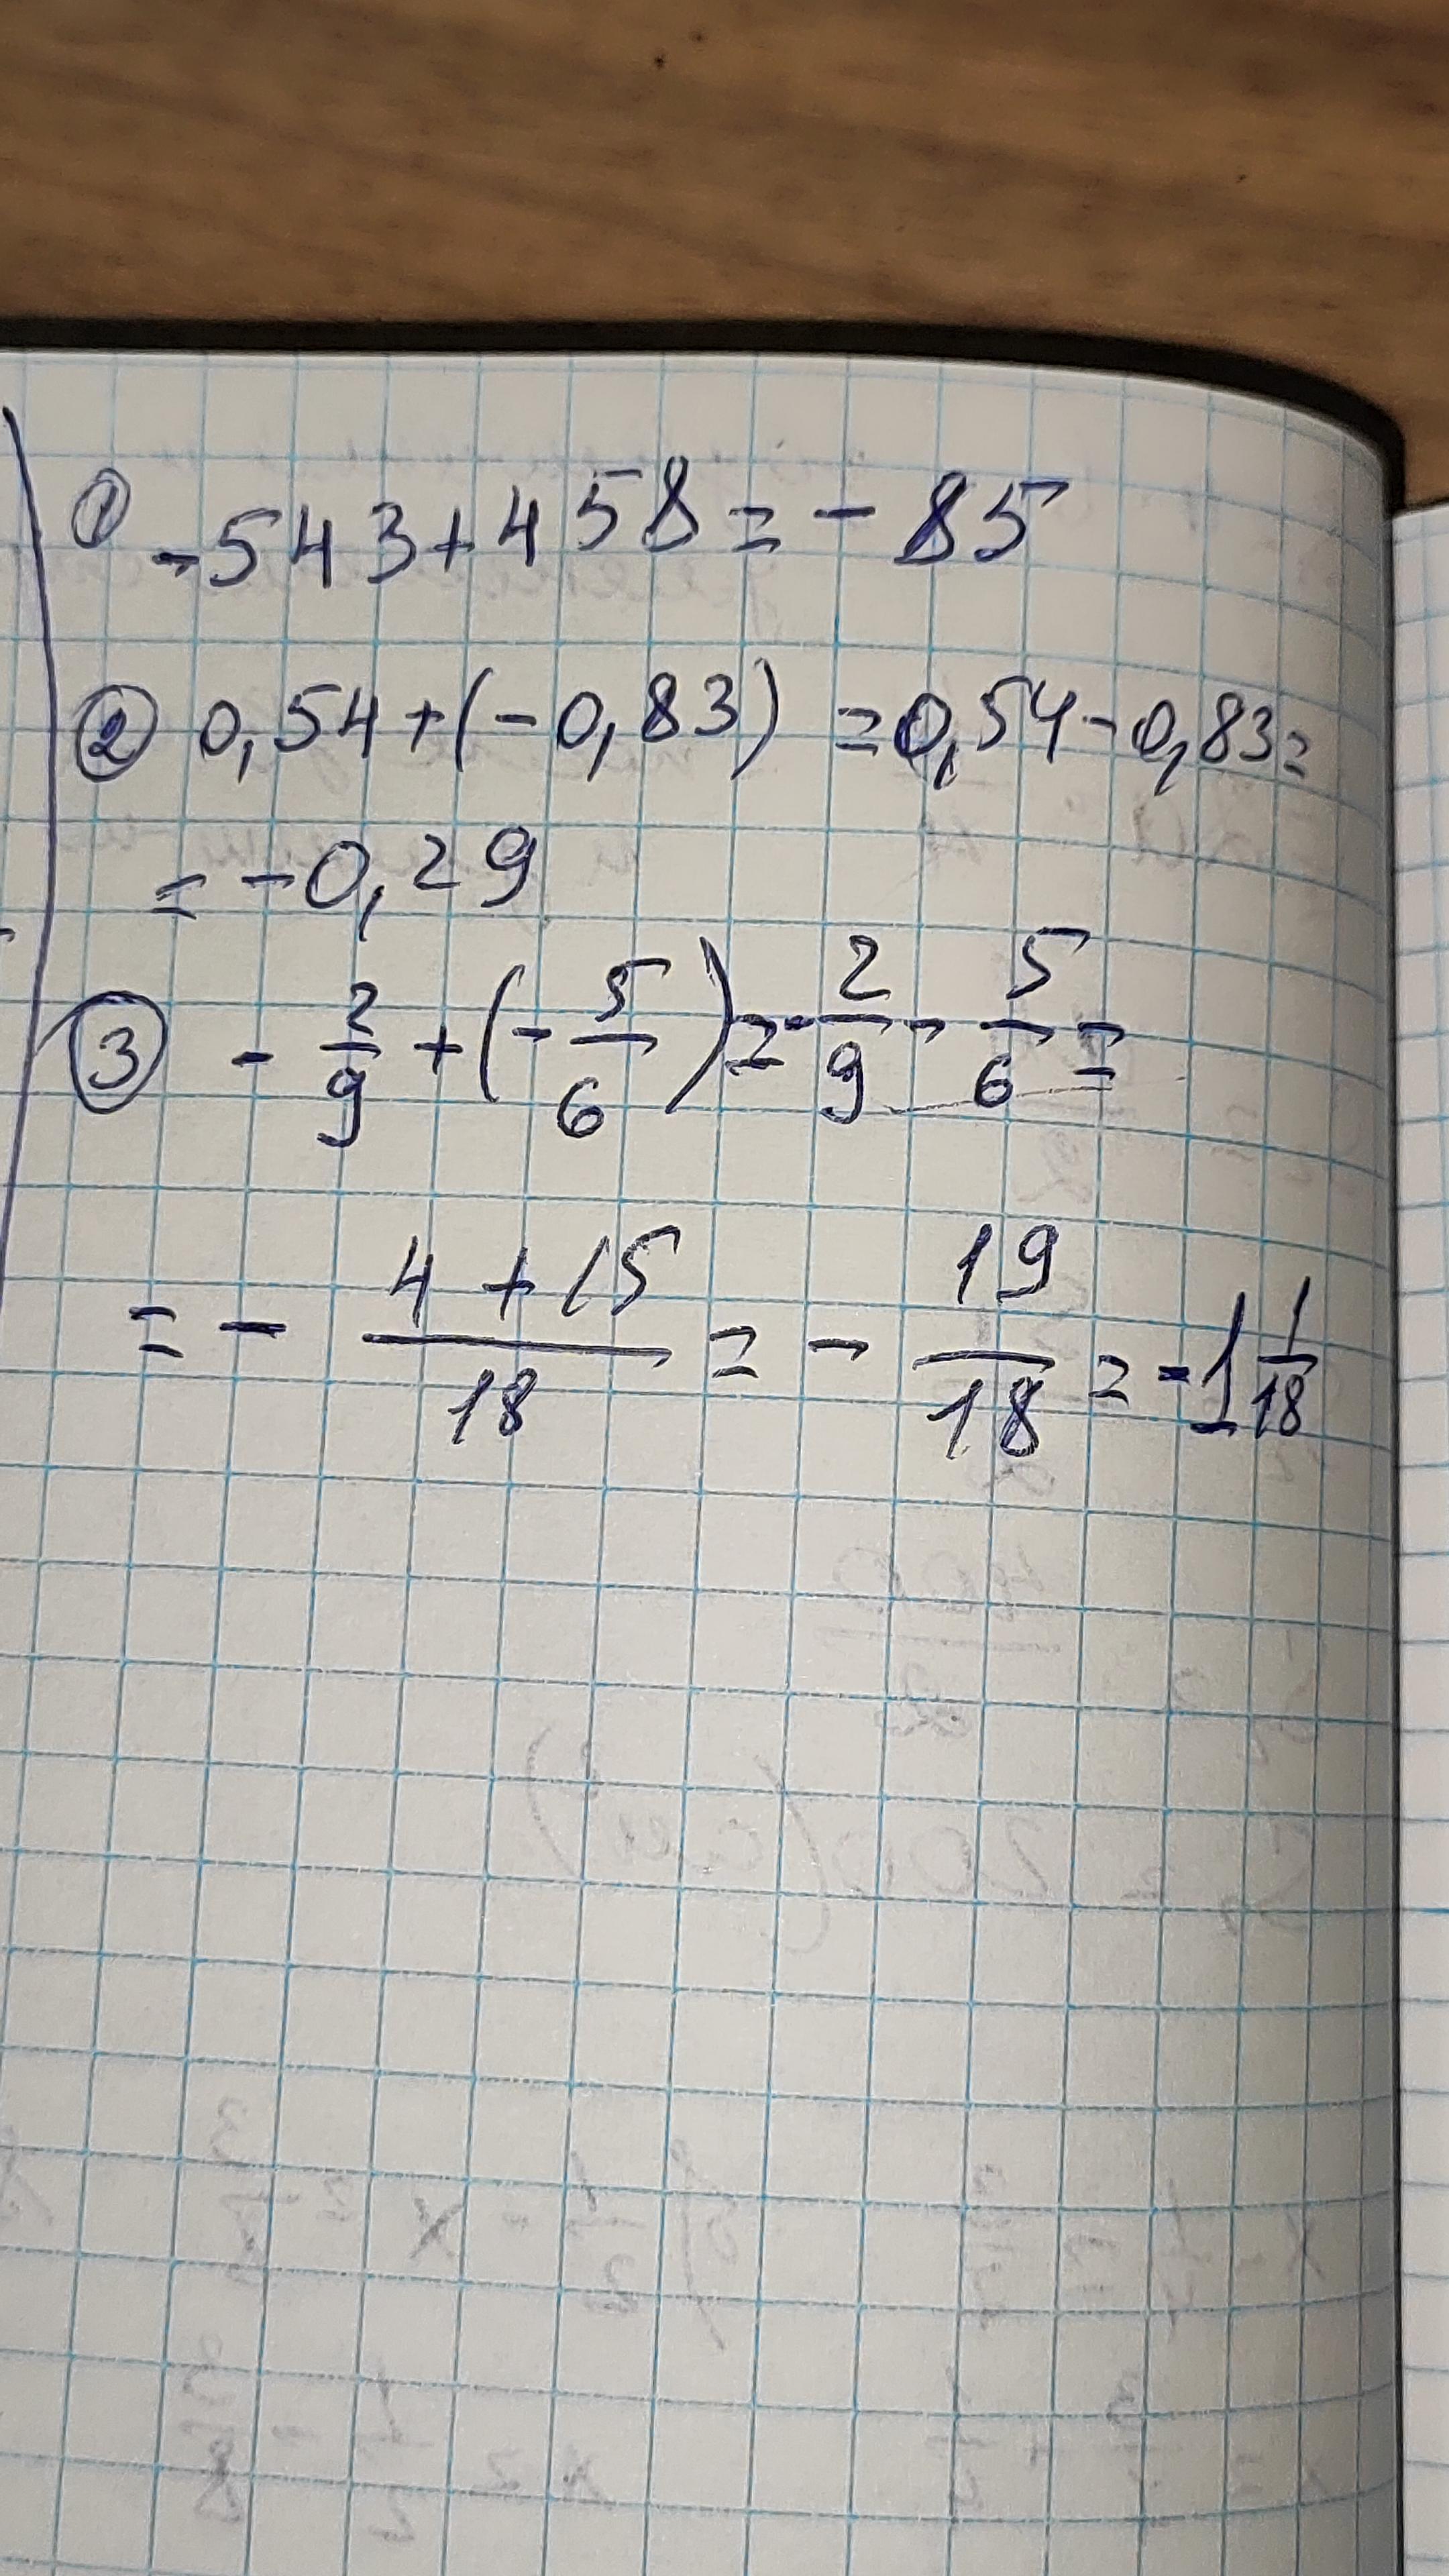 ① -543+458=-85
② 0,54+(-0,83)=0,54-0,83=
=-0,29
③ -2/9+(-5/6)=-2/9-5/6=
=-(4+15)/18=-19/18=-1 1/18